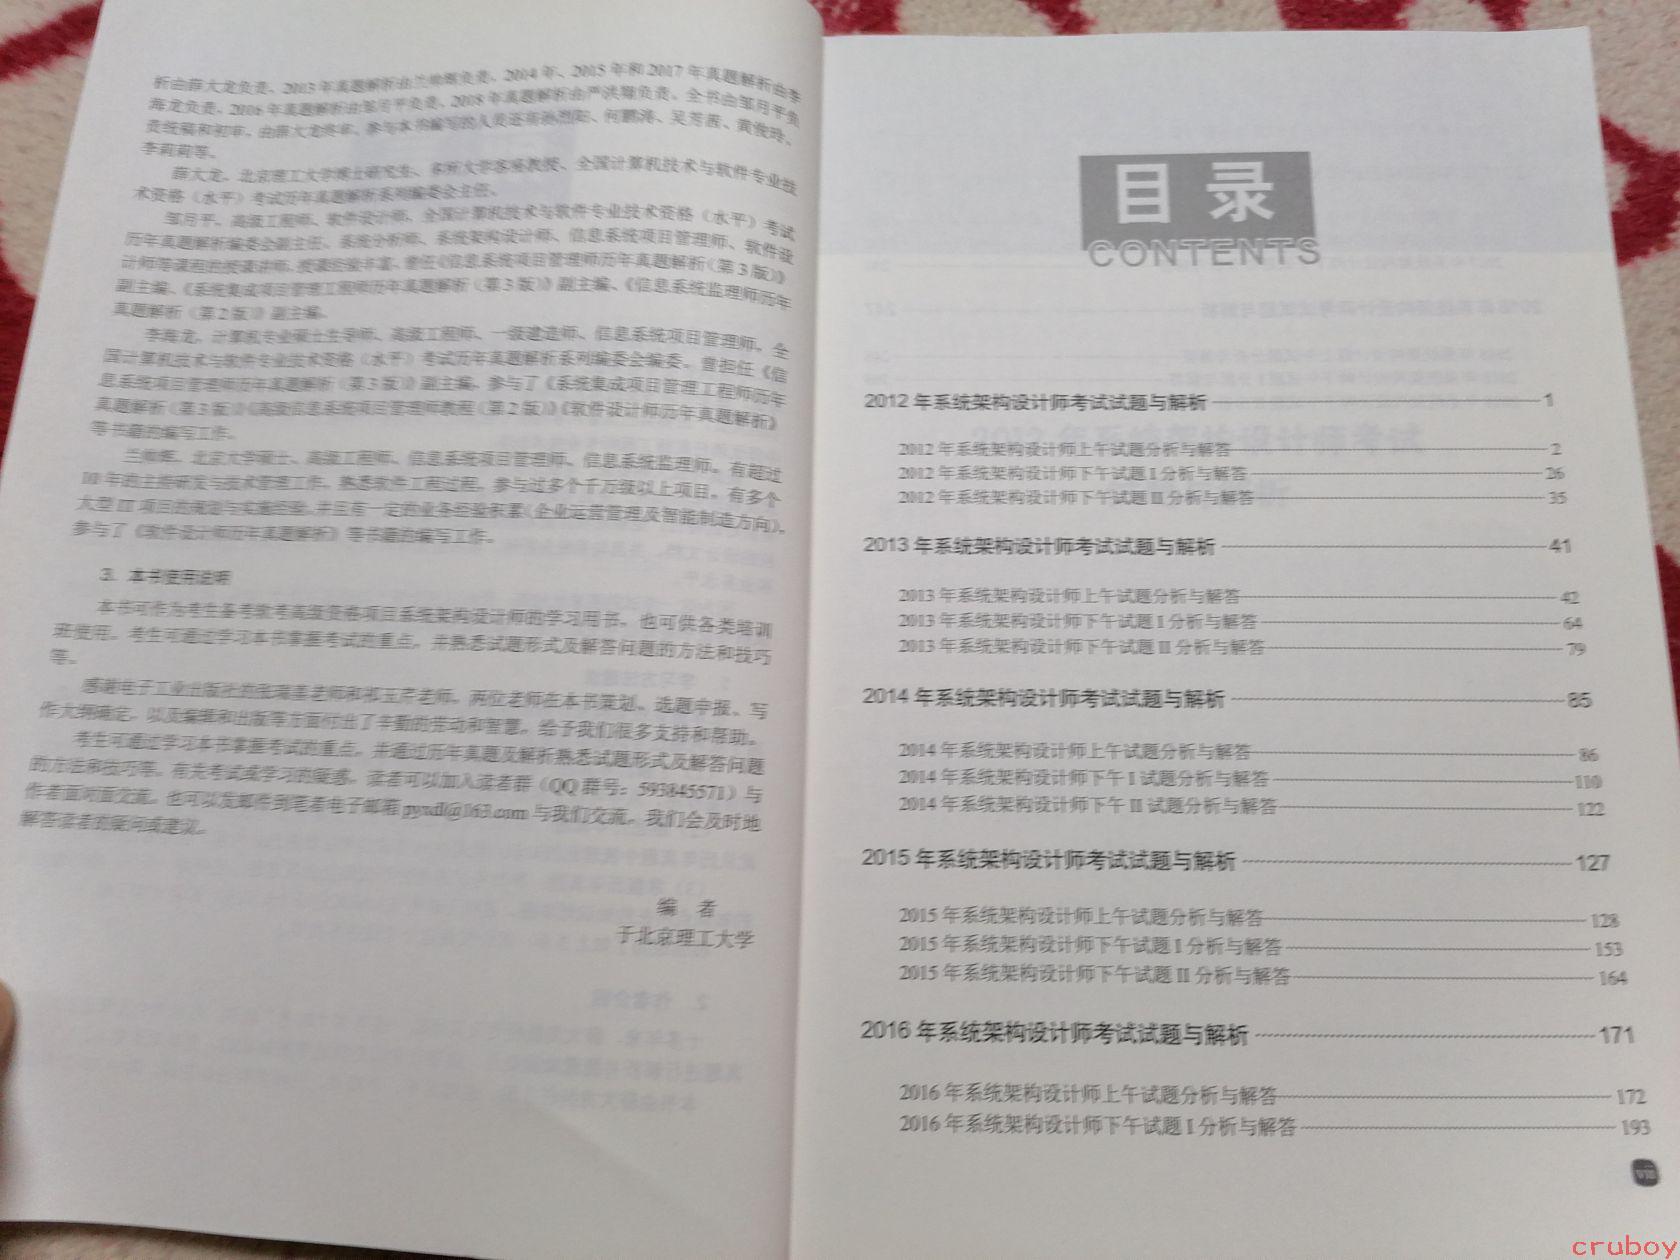 析由薛大龙负责、2013年真题解析由兰帅辉负责、2014年、2015年和2017年真题解析由李
海龙负责、2016年真题解析由邹月平负责、2018年真题解析由严洪翔负责。全书由邹月平负
责统稿和初审,由薛大龙终审。参与本书编写的人员还有孙烈阳、何鹏涛、吴芳茜、黄俊玲、
李莉莉等。
薛大龙,北京理工大学博士研究生、多所大学客座教授、全国计算机技术与软件专业技
术资格(水平)考试历年真题解析系列编委会主任。
邹月平,高级工程师、软件设计师、全国计算机技术与软件专业技术资格(水平)考试
历年真题解析编委会副主任、系统分析师、系统架构设计师、信息系统项目管理师、软件设
计师等课程的授课讲师,授课经验丰富,曾任《信息系统项目管理师历年真题解析(第3版)》
副主编、《系统集成项目管理工程师历年真题解析(第3版)》副主编、《信息系统监理师历年
真题解析(第2版)》副主编。
李海龙,计算机专业硕士生导师、高级工程师、一级建造师、信息系统项目管理师,全
国计算机技术与软件专业技术资格(水平)考试历年真题解析系列编委会编委。曾担任《信
息系统项目管理师历年真题解析(第3版)》副主编、参与了《系统集成项目管理工程师历年
真题解析(第3版)》《高级信息系统项目管理师教程(第2版)》《软件设计师历年真题解析》
等书籍的编写工作。
兰帅辉,北京大学硕士、高级工程师、信息系统项目管理师、信息系统监理师。有超过
10年的主持研发与技术管理工作,熟悉软件工程过程,参与过多个千万级以上项目,有多个
大型IT项目的规划与实施经验,并且有一定的业务经验积累(企业运营管理及智能制造方向),
参与了《软件设计师历年真题解析》等书籍的编写工作。
3. 本书使用说明
本书可作为考生备考软考高级资格项目系统架构设计师的学习用书,也可供各类培训
班使用。考生可通过学习本书掌握考试的重点,并熟悉试题形式及解答问题的方法和技巧
等。
感谢电子工业出版社的张瑞喜老师和祁玉芹老师,两位老师在本书策划、选题申报、写
作大纲确定,以及编辑和出版等方面付出了辛勤的劳动和智慧,给予我们很多支持和帮助。
考生可通过学习本书掌握考试的重点,并通过历年真题及解析熟悉试题形式及解答问题
的方法和技巧等。有关考试或学习的疑惑,读者可以加入读者群(QQ群号:593845571)与
作者面对面交流,也可以发邮件到笔者电子邮箱pyxdl@163.com与我们交流,我们会及时地
解答读者的疑问或建议。
编 者
于北京理工大学
目 录
CONTENTS
2012年系统架构设计师考试试题与解析 1
2012年系统架构设计师上午试题分析与解答 2
2012年系统架构设计师下午试题I分析与解答 26
2012年系统架构设计师下午试题II分析与解答 35
2013年系统架构设计师考试试题与解析 41
2013年系统架构设计师上午试题分析与解答 42
2013年系统架构设计师下午试题I分析与解答 64
2013年系统架构设计师下午试题II分析与解答 79
2014年系统架构设计师考试试题与解析 85
2014年系统架构设计师上午试题分析与解答 86
2014年系统架构设计师下午I试题分析与解答 110
2014年系统架构设计师下午II试题分析与解答 122
2015年系统架构设计师考试试题与解析 127
2015年系统架构设计师上午试题分析与解答 128
2015年系统架构设计师下午试题I分析与解答 153
2015年系统架构设计师下午试题II分析与解答 164
2016年系统架构设计师考试试题与解析 171
2016年系统架构设计师上午试题分析与解答 172
2016年系统架构设计师下午试题I分析与解答 193
vii
cruboy